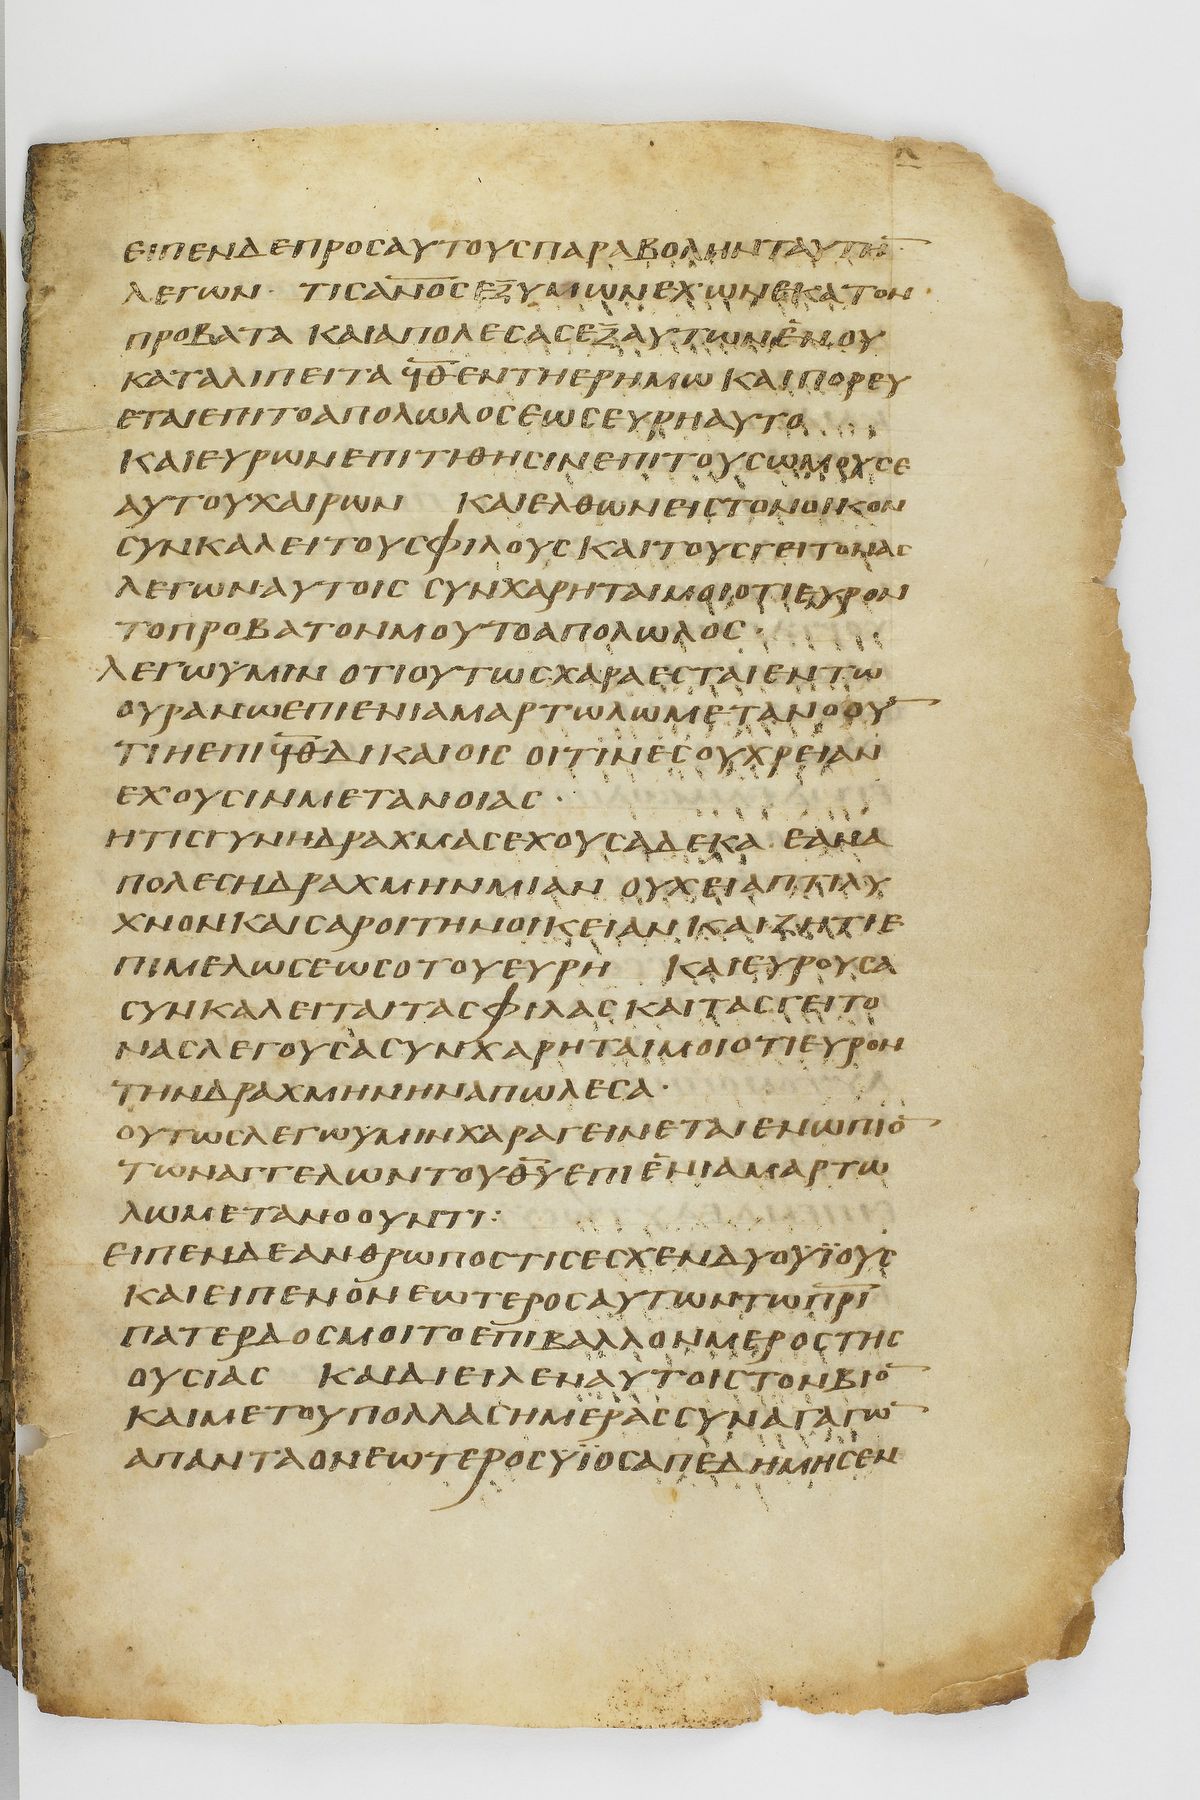 ΕΙΠΕΝΔΕΠΡΟΣΑΥΤΟΥΣΠΑΡΑΒΟΛΗΝΤΑΥΤΗ̅
ΛΕΓΩΝ· ΤΙΣΑ̅Ν̅Ο̅Σ̅ΕΞΥΜΩΝΕΧΩΝΕΚΑΤΟΝ
ΠΡΟΒΑΤΑ ΚΑΙΑΠΟΛΕΣΑΣΕΞΑΥΤΩΝΕΝΟΥ
ΚΑΤΑΛΙΠΕΙΤΑϞ̅Θ̅ΕΝΤΗΕΡΗΜΩ ΚΑΙΠΟΡΕΥ
ΕΤΑΙΕΠΙΤΟΑΠΟΛΩΛΟΣΕΩΣΕΥΡΗΑΥΤΟ
ΚΑΙΕΥΡΩΝΕΠΙΤΙΘΗΣΙΝΕΠΙΤΟΥΣΩΜΟΥΣΕ
ΑΥΤΟΥΧΑΙΡΩΝ ΚΑΙΕΛΘΩΝΕΙΣΤΟΝΟΙΚΟΝ
ΣΥΝΚΑΛΕΙΤΟΥΣΦΙΛΟΥΣΚΑΙΤΟΥΣΓΕΙΤΟΝΑΣ
ΛΕΓΩΝΑΥΤΟΙΣ ΣΥΝΧΑΡΗΤΑΙΜΟΙΟΤΙΕΥΡΟΝ
ΤΟΠΡΟΒΑΤΟΝΜΟΥΤΟΑΠΟΛΩΛΟΣ·
ΛΕΓΩΫΜΙΝ ΟΤΙΟΥΤΩΣΧΑΡΑΕΣΤΑΙΕΝΤΩ
ΟΥΡΑΝΩΕΠΙΕΝΙΑΜΑΡΤΩΛΩΜΕΤΑΝΟΟΥ̅
ΤΙΗΕΠΙϞ̅Θ̅ΔΙΚΑΙΟΙΣ ΟΙΤΙΝΕΣΟΥΧΡΕΙΑΝ
ΕΧΟΥΣΙΝΜΕΤΑΝΟΙΑΣ·
ΗΤΙΣΓΥΝΗΔΡΑΧΜΑΣΕΧΟΥΣΑΔΕΚΑ ΕΑΝΑ
ΠΟΛΕΣΗΔΡΑΧΜΗΝΜΙΑΝ ΟΥΧΕΙΑΠΤΙΛΥ
ΧΝΟΝΚΑΙΣΑΡΟΙΤΗΝΟΙΚΕΙΑΝΚΑΙΖΗΤΙΕ
ΠΙΜΕΛΩΣΕΩΣΟΤΟΥΕΥΡΗ ΚΑΙΕΥΡΟΥΣΑ
ΣΥΝΚΑΛΕΙΤΑΙΤΑΣΦΙΛΑΣΚΑΙΤΑΣΓΕΙΤΟ
ΝΑΣΛΕΓΟΥΣΑΣΥΝΧΑΡΗΤΑΙΜΟΙΟΤΙΕΥΡΟΝ
ΤΗΝΔΡΑΧΜΗΝΗΝΑΠΩΛΕΣΑ·
ΟΥΤΩΣΛΕΓΩΫΜΙΝΧΑΡΑΓΕΙΝΕΤΑΙΕΝΩΠΙΟ̅
ΤΩΝΑΓΓΕΛΩΝΤΟΥΘ̅Υ̅ΕΠΙΕΝΙΑΜΑΡΤΩ
ΛΩΜΕΤΑΝΟΟΥΝΤΙ:
ΕΙΠΕΝΔΕΑΝΘΡΩΠΟΣΤΙΣΕΣΧΕΝΔΥΟΥΪΟΥΣ
ΚΑΙΕΙΠΕΝΟΝΕΩΤΕΡΟΣΑΥΤΩΝΤΩΠ̅Ρ̅Ι̅
ΠΑΤΕΡΔΟΣΜΟΙΤΟΕΠΙΒΑΛΛΟΝΜΕΡΟΣΤΗΣ
ΟΥΣΙΑΣ ΚΑΙΔΙΕΙΛΕΝΑΥΤΟΙΣΤΟΝΒΙΟ̅
ΚΑΙΜΕΤΟΥΠΟΛΛΑΣΗΜΕΡΑΣΣΥΝΑΓΑΓΩ̅
ΑΠΑΝΤΑΟΝΕΩΤΕΡΟΣΥΪΟΣΑΠΕΔΗΜΗΣΕΝ